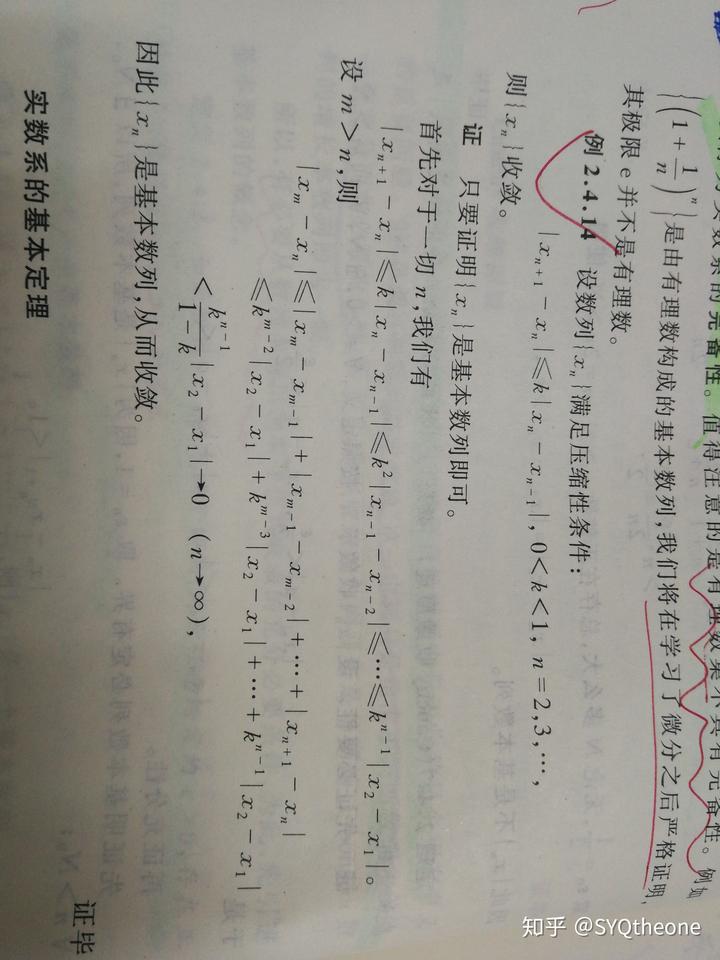 实数系的完备性。值得注意的是有理数集不具有完备性。例如
{(1+1/n)^n}是由有理数构成的基本数列,我们将在学习了微分之后严格证明,
其极限 e 并不是有理数。
例 2.4.14 设数列{x_n}满足压缩性条件:
|x_{n+1}-x_n|≤k|x_n-x_{n-1}|, 0<k<1, n=2,3,…,
则{x_n}收敛。
证 只要证明{x_n}是基本数列即可。
首先对于一切 n,我们有
|x_{n+1}-x_n|≤k|x_n-x_{n-1}|≤k²|x_{n-1}-x_{n-2}|≤…≤k^{n-1}|x_2-x_1|。
设 m>n,则
|x_m-x_n|≤|x_m-x_{m-1}|+|x_{m-1}-x_{m-2}|+…+|x_{n+1}-x_n|
≤k^{m-2}|x_2-x_1|+k^{m-3}|x_2-x_1|+…+k^{n-1}|x_2-x_1|
<k^{n-1}/(1-k)|x_2-x_1|→0 (n→∞),
因此{x_n}是基本数列,从而收敛。
证毕
实数系的基本定理
知乎 @SYQtheone